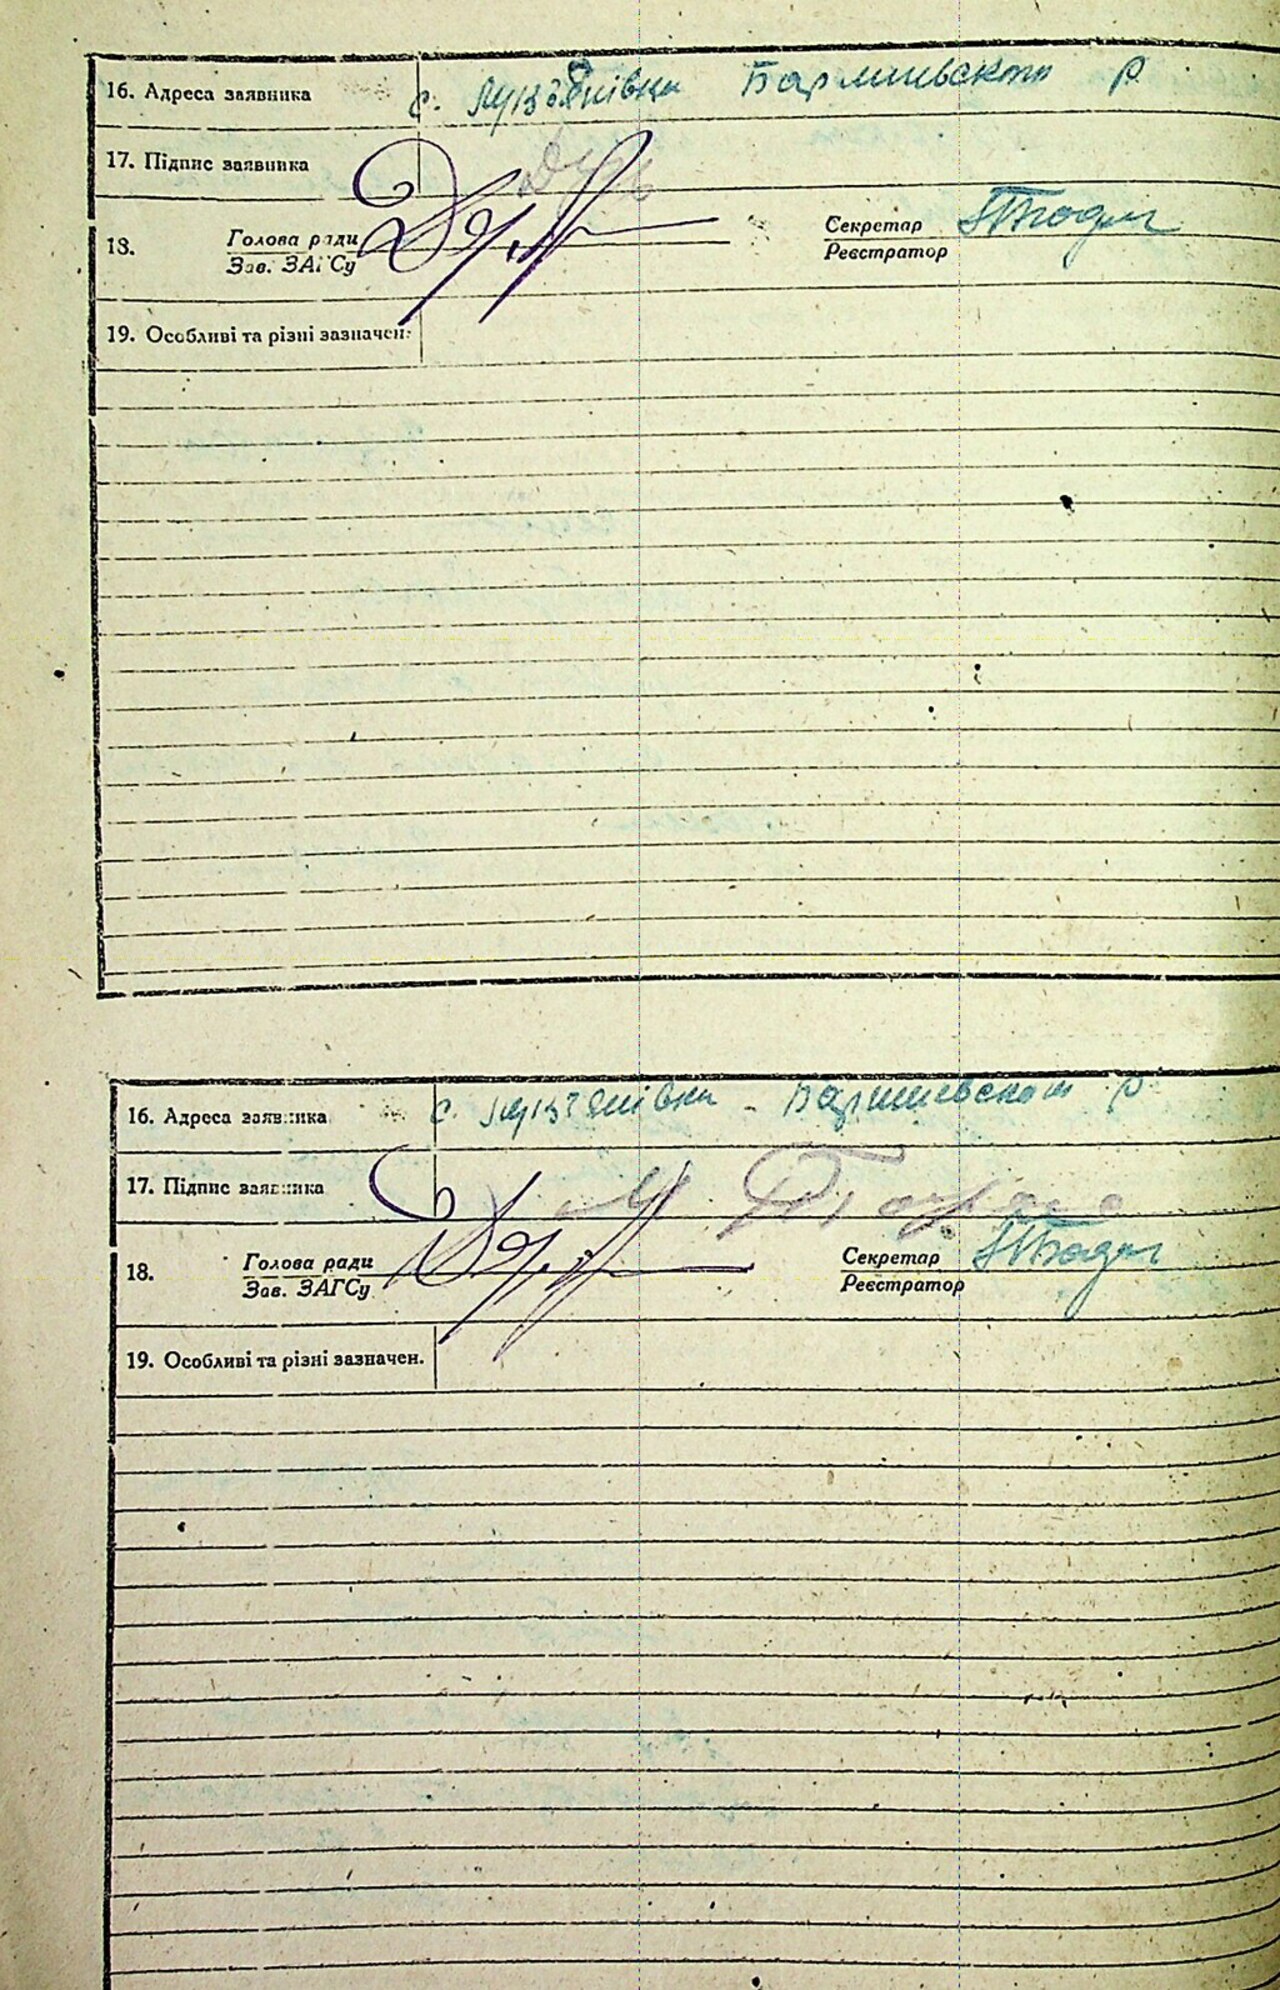 16. Адреса заявника с. Лукʼянівка Баришевского р
17. Підпис заявника
18. Голова ради Секретар
Зав. ЗАГСу Реєстратор
19. Особливі та різні зазначен.
16. Адреса заявника с. Лукʼянівка Баришевского р
17. Підпис заявника
18. Голова ради Секретар
Зав. ЗАГСу Реєстратор
19. Особливі та різні зазначен.